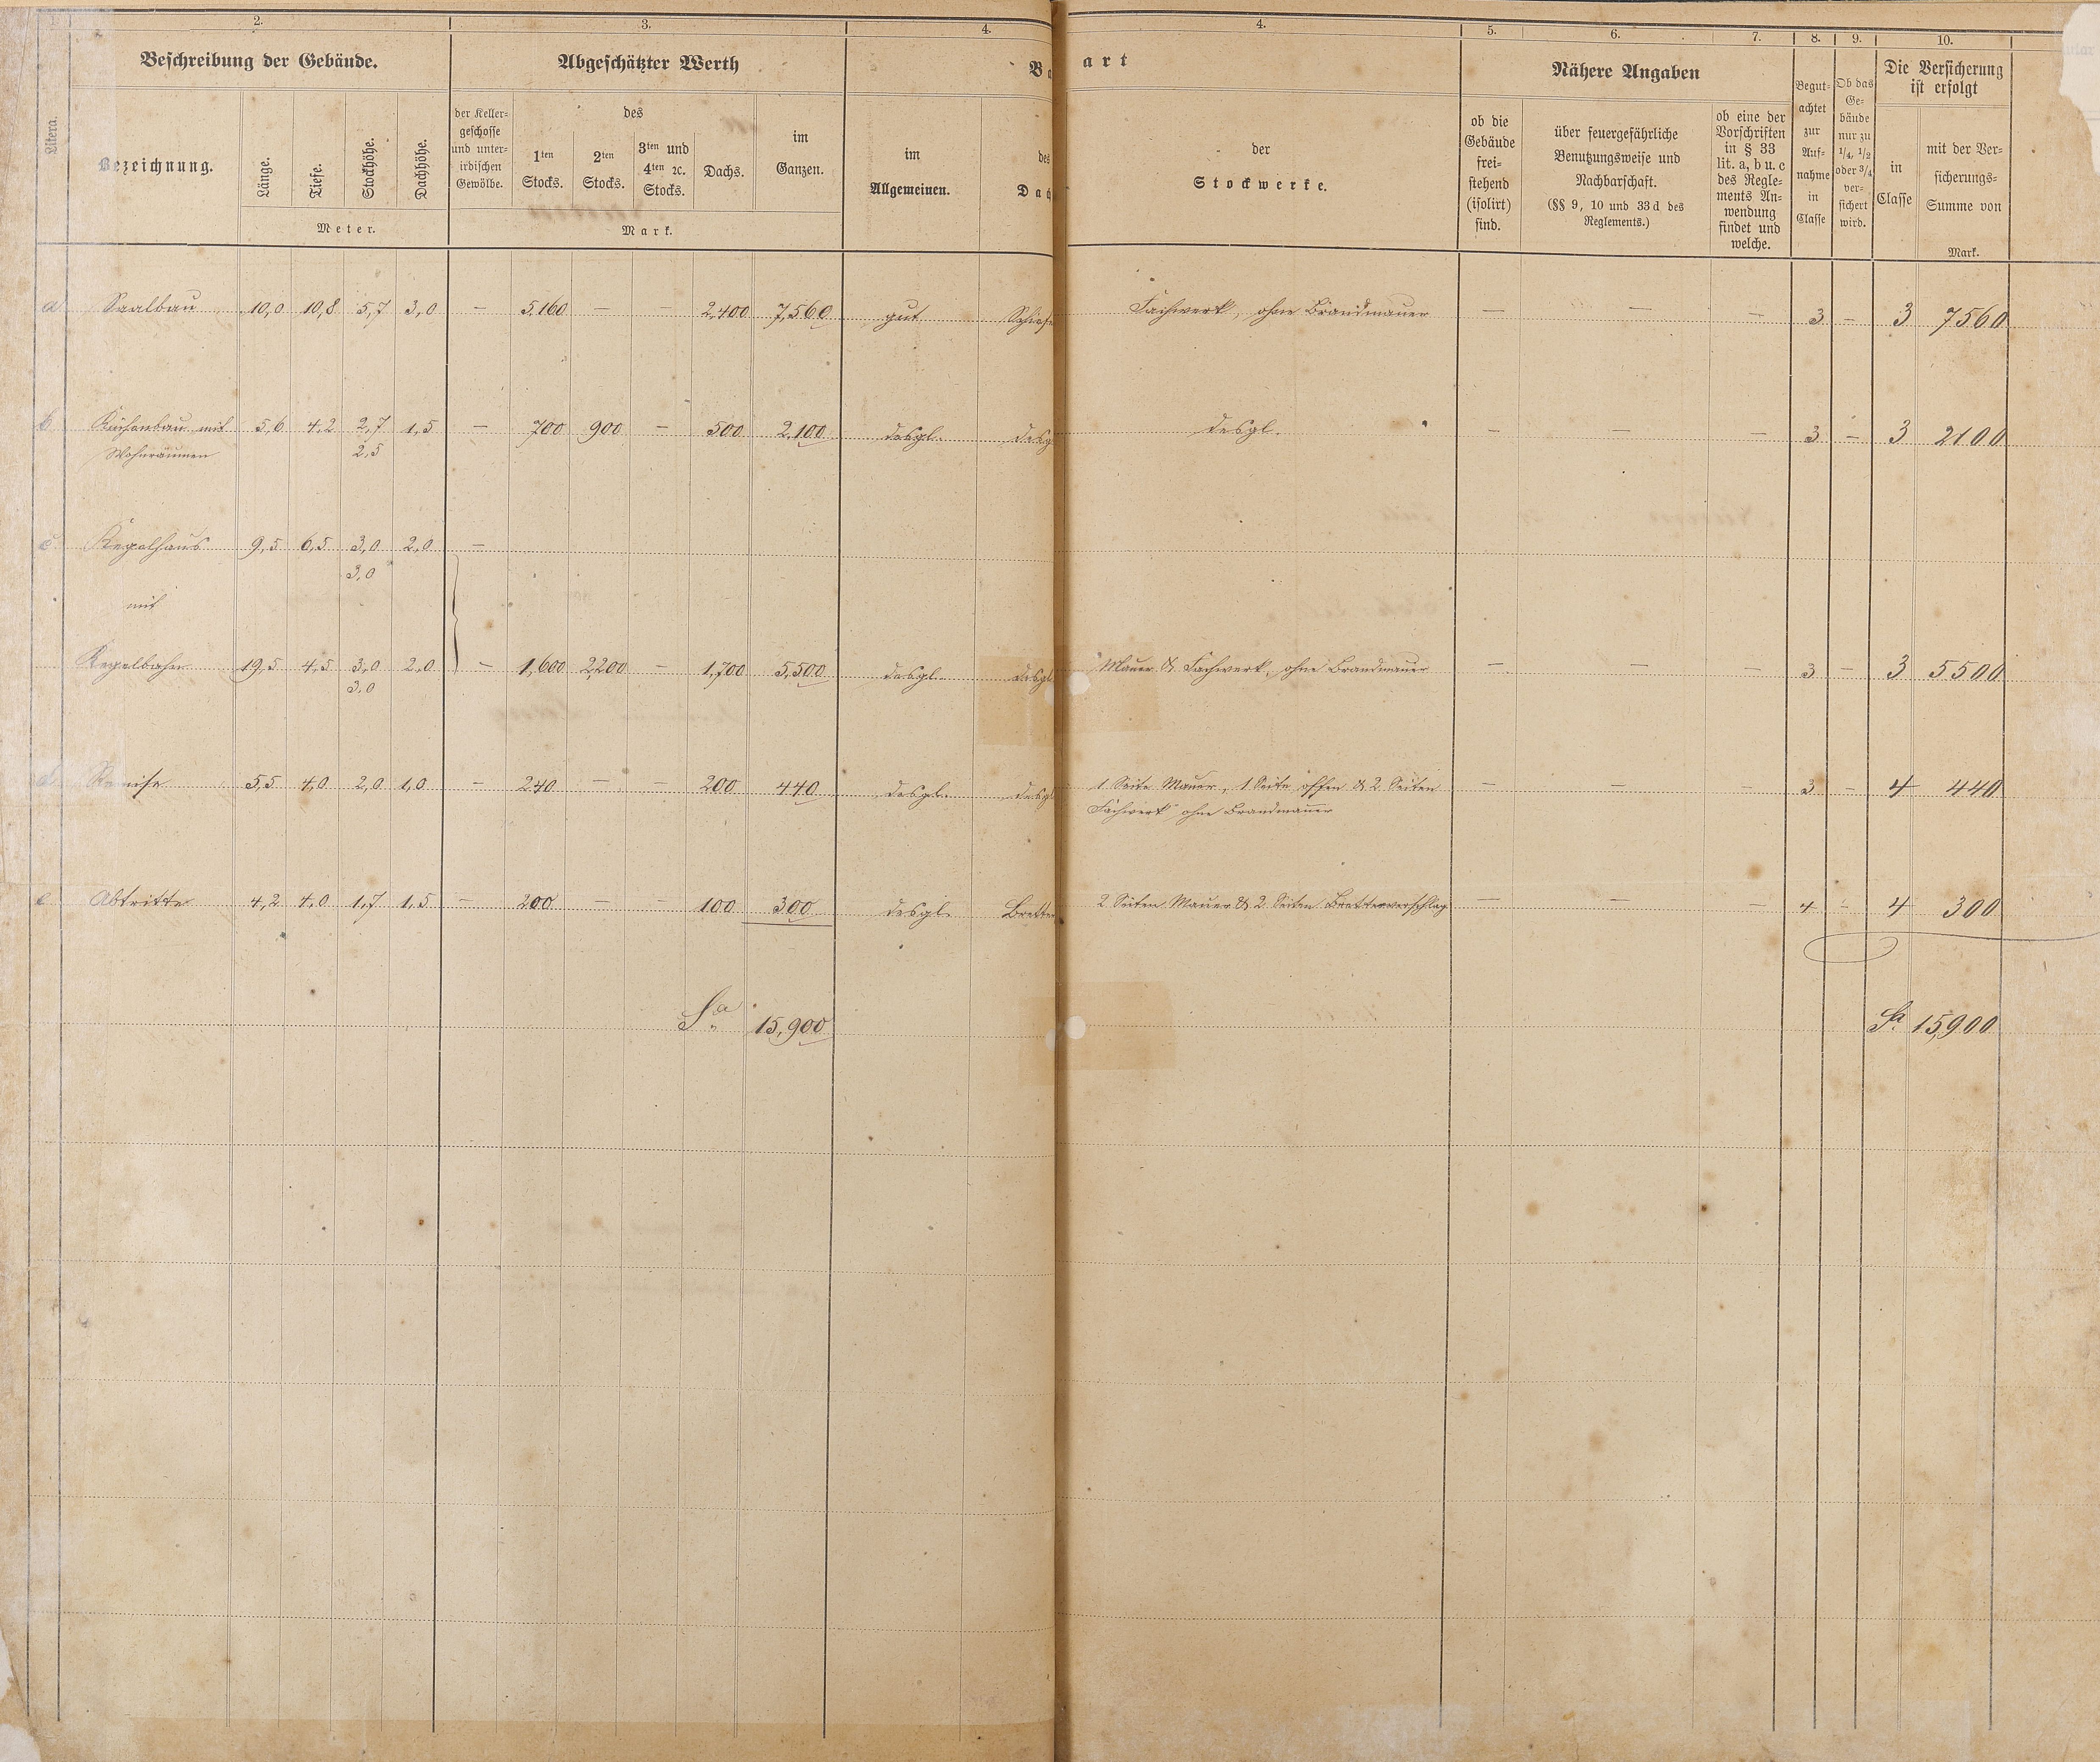 1. 2. 3. 4. 4. 5. 6. 7. 8. 9. 10.
Litera.
Beschreibung der Gebäude.
Bezeichnung.
Länge.
Tiefe.
Stockhöhe.
Dachhöhe.
Meter.
Abgeschätzter Werth
der Keller-
geschosse
und unter-
irdischen
Gewölbe.
des
1ten
Stocks.
2ten
Stocks.
3ten und
4ten ꝛc.
Stocks.
Dachs.
im
Ganzen.
Mark.
Ba
im
Allgemeinen.
des
Dac
art
der
Stockwerke.
Nähere Angaben
ob die
Gebäude
frei-
stehend
(isolirt)
sind.
über feuergefährliche
Benutzungsweise und
Nachbarschaft.
(§§ 9, 10 und 33 d des
Reglements.)
ob eine der
Vorschriften
in § 33
lit. a, b u. c
des Regle-
ments An-
wendung
findet und
welche.
Begut-
achtet
zur
Auf-
nahme
in
Classe
Ob das
Ge-
bäude
nur zu
1/4, 1/2
oder 3/4
ver-
sichert
wird.
Die Versicherung
ist erfolgt
in
Classe
mit der Ver-
sicherungs-
Summe von
Mark.
a Saalbau 10,0 10,8 5,7 3,0 — 5,160 — — 2,400 7,560 gut Schiefe Fachwerk, ohne Brandmauer — — — 3 — 3 7560
b Küchenbau mit 5,6 4,2 2,7 1,5 — 700 900 — 500 2,100 desgl. desg desgl. — — — 3 — 3 2100
Wohnräumen 2,5
c Kegelhaus 9,5 6,5 3,0 2,0 —
3,0
mit
Kegelbahn 19,5 4,5 3,0 2,0 — 1,600 2200 — 1,700 5,500 desgl. desgl Mauer & Fachwerk, ohne Brandmauer — — — 3 — 3 5500
3,0
d Remise 5,5 4,0 2,0 1,0 — 240 — — 200 440 desgl. desgl 1 Seite Mauer, 1 Seite offen & 2 Seiten — — — 3 — 4 440
Fachwerk ohne Brandmauer
e Abtritte 4,2 4,0 1,7 1,5 — 200 — — 100 300 desgl. Bretter 2 Seiten Mauer & 2 Seiten Bretterverschlag — — — 4 — 4 300
Sa 15,900 Sa 15,900